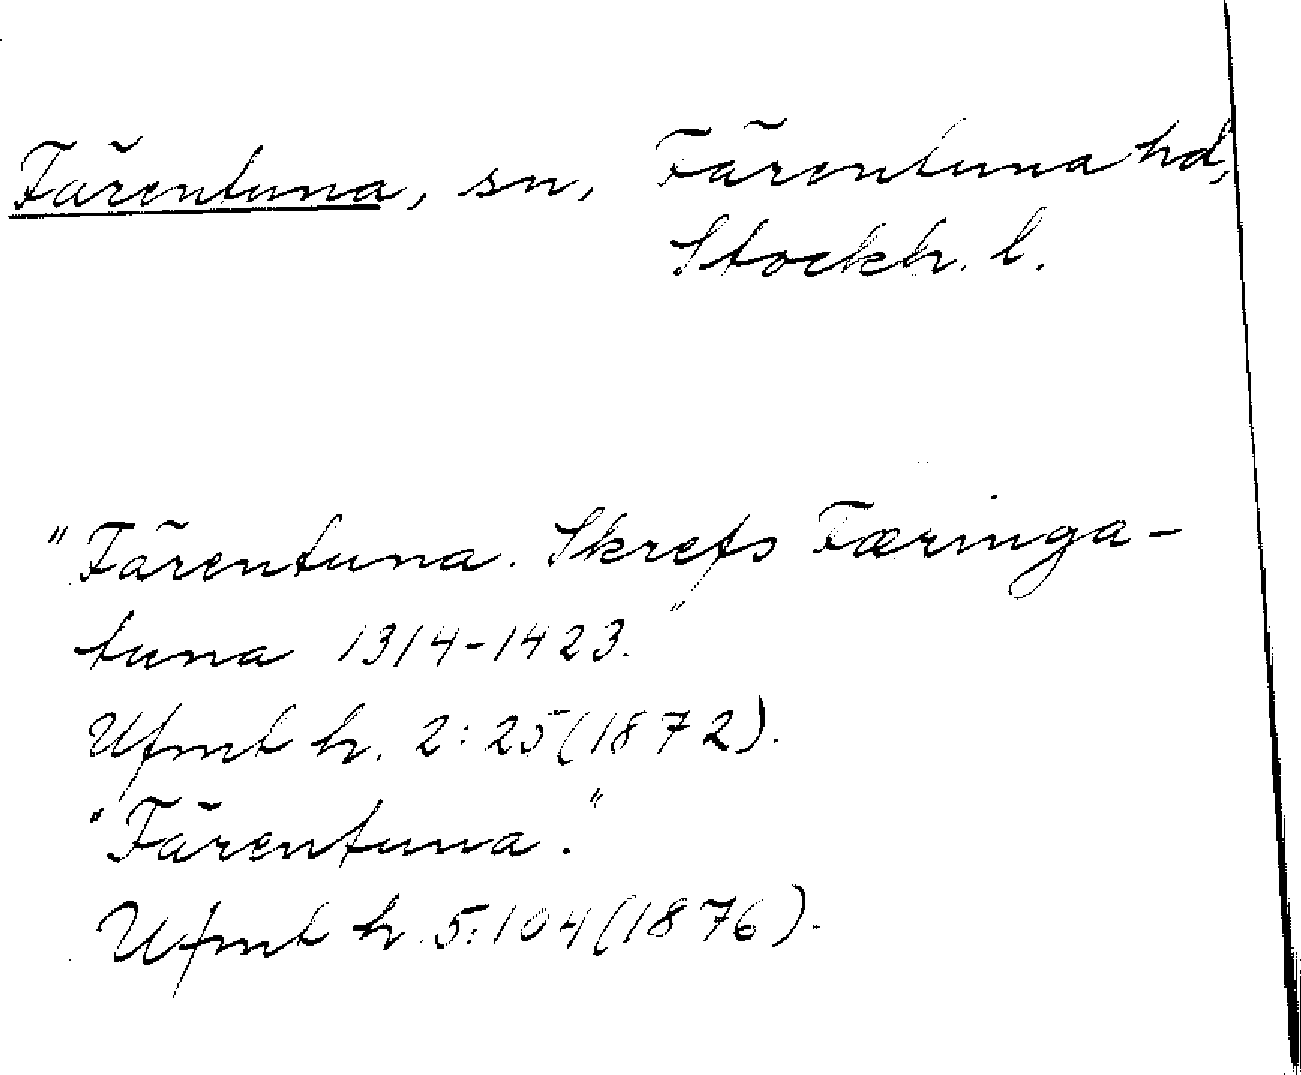 Färentuna, sn, Färentuna hd,
Stockh. l.
"Färentuna. Skrefs Færinga-
tuna 1314-1423."
Ufmt h. 2:25(1872).
"Färentuna."
Ufmt h. 5:104(1876).